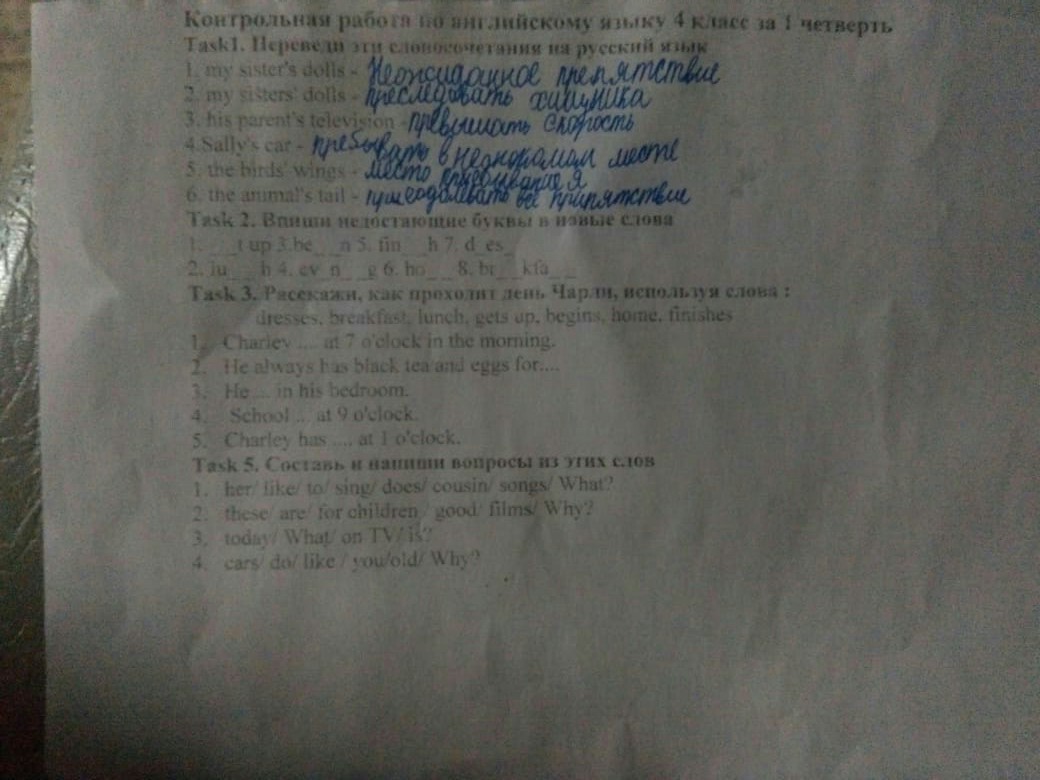 Контрольная работа по английскому языку 4 класс за 1 четверть
Task1. Переведи эти словосочетания на русский язык
1. my sister's dolls - Неожиданное препятствие
2. my sisters' dolls - преследовать хищника
3. his parent's television - превышать скорость
4.Sally's car - пребывать в незнакомом месте
5. the birds' wings - место пребывание я
6. the animal's tail - преодолевать все припятствие
Task 2. Впиши недостающие буквы в новые слова
1. _ _t up 3.be_ _n 5. fin_ _h 7. d_es_
2. lu_ _h 4. ev_n_ _g 6. ho_ _ 8. br_ _kfa_ _
Task 3. Расскажи, как проходит день Чарли, используя слова :
dresses, breakfast, lunch, gets up, begins, home, finishes
1. Charley .... at 7 o'clock in the morning.
2. He always has black tea and eggs for....
3. He ... in his bedroom.
4. School ... at 9 o'clock.
5. Charley has .... at 1 o'clock.
Task 5. Составь и напиши вопросы из этих слов
1. her/ like/ to/ sing/ does/ cousin/ songs/ What?
2. these/ are/ for children / good/ films/ Why?
3. today/ What/ on TV/ is?
4. cars/ do/ like / you/old/ Why?